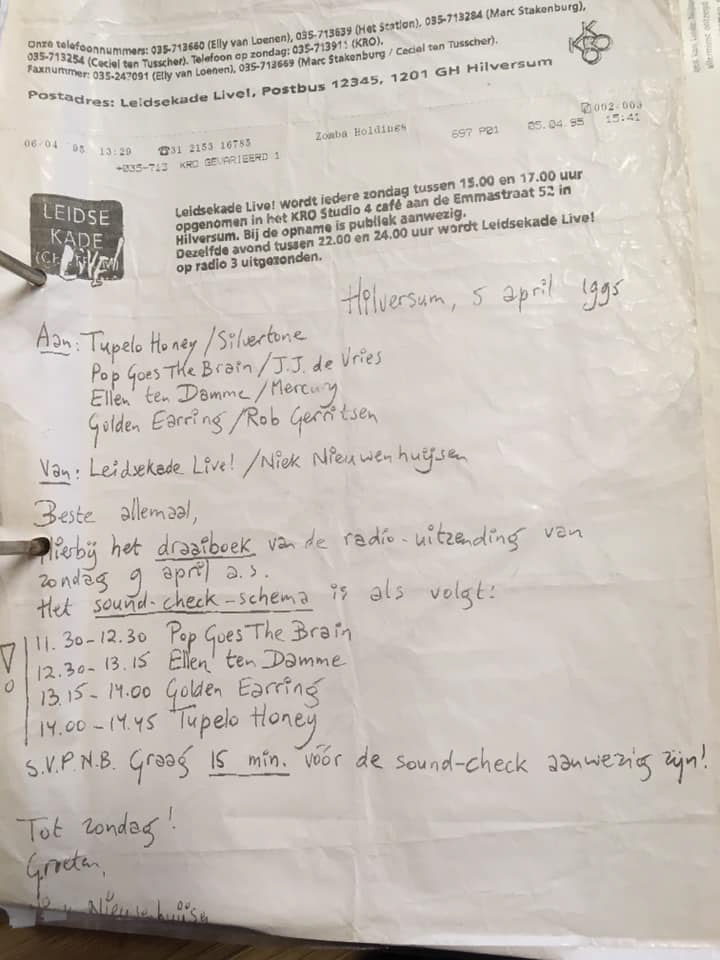 Onze telefoonnummers: 035-713660 (Elly van Loenen), 035-713639 (Het Station), 035-713284 (Marc Stakenburg),
035-713254 (Ceciel ten Tusscher). Telefoon op zondag: 035-713911 (KRO).
Faxnummer: 035-247091 (Elly van Loenen), 035-713669 (Marc Stakenburg / Ceciel ten Tusscher).
Postadres: Leidsekade Live!, Postbus 12345, 1201 GH Hilversum
KRO
002-003
06/04 '95 13:29 ☎31 2153 16785 Zomba Holdings 697 P01 05.04.95 15:41
+035-713 KRO GEVARIEERD 1
LEIDSE
KADE
Live!
Leidsekade Live! wordt iedere zondag tussen 15.00 en 17.00 uur
opgenomen in het KRO Studio 4 café aan de Emmastraat 52 in
Hilversum. Bij de opname is publiek aanwezig.
Dezelfde avond tussen 22.00 en 24.00 uur wordt Leidsekade Live!
op radio 3 uitgezonden.
Hilversum, 5 april 1995
Aan: Tupelo Honey / Silvertone
Pop Goes The Brain / J.J. de Vries
Ellen ten Damme / Mercury
Golden Earring / Rob Gerritsen
Van: Leidsekade Live! / Niek Nieuwenhuijsen
Beste allemaal,
Hierbij het draaiboek van de radio-uitzending van
zondag 9 april a.s.
Het sound-check-schema is als volgt:
! 11.30-12.30 Pop Goes The Brain
12.30-13.15 Ellen ten Damme
13.15-14.00 Golden Earring
14.00-14.45 Tupelo Honey
S.V.P. N.B. Graag 15 min. vóór de sound-check aanwezig zijn!
Tot zondag!
Groeten,